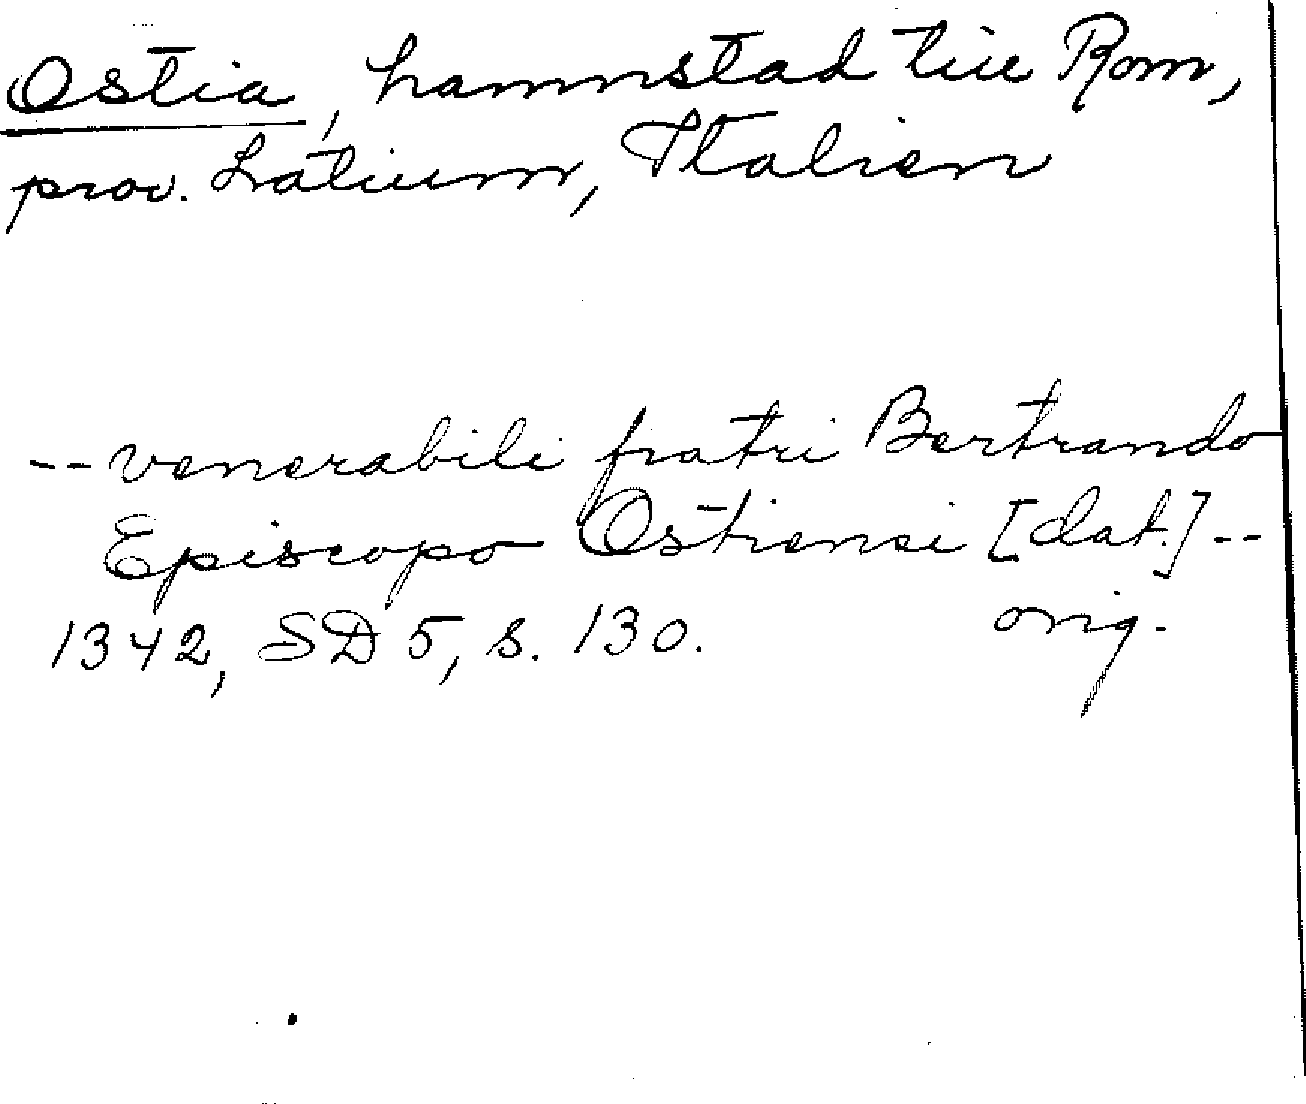 Ostia, hamnstad till Rom,
prov. Latium, Italien
-- venerabili fratri Bertrando
Episcopo Ostiensi [dat.] --
1342, SD 5, s. 130. orig.